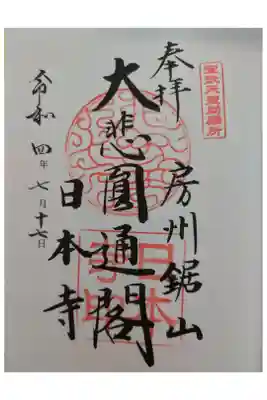 奉拝
房州鋸山
大悲圓通閣
日本寺
令和四年七月十七日